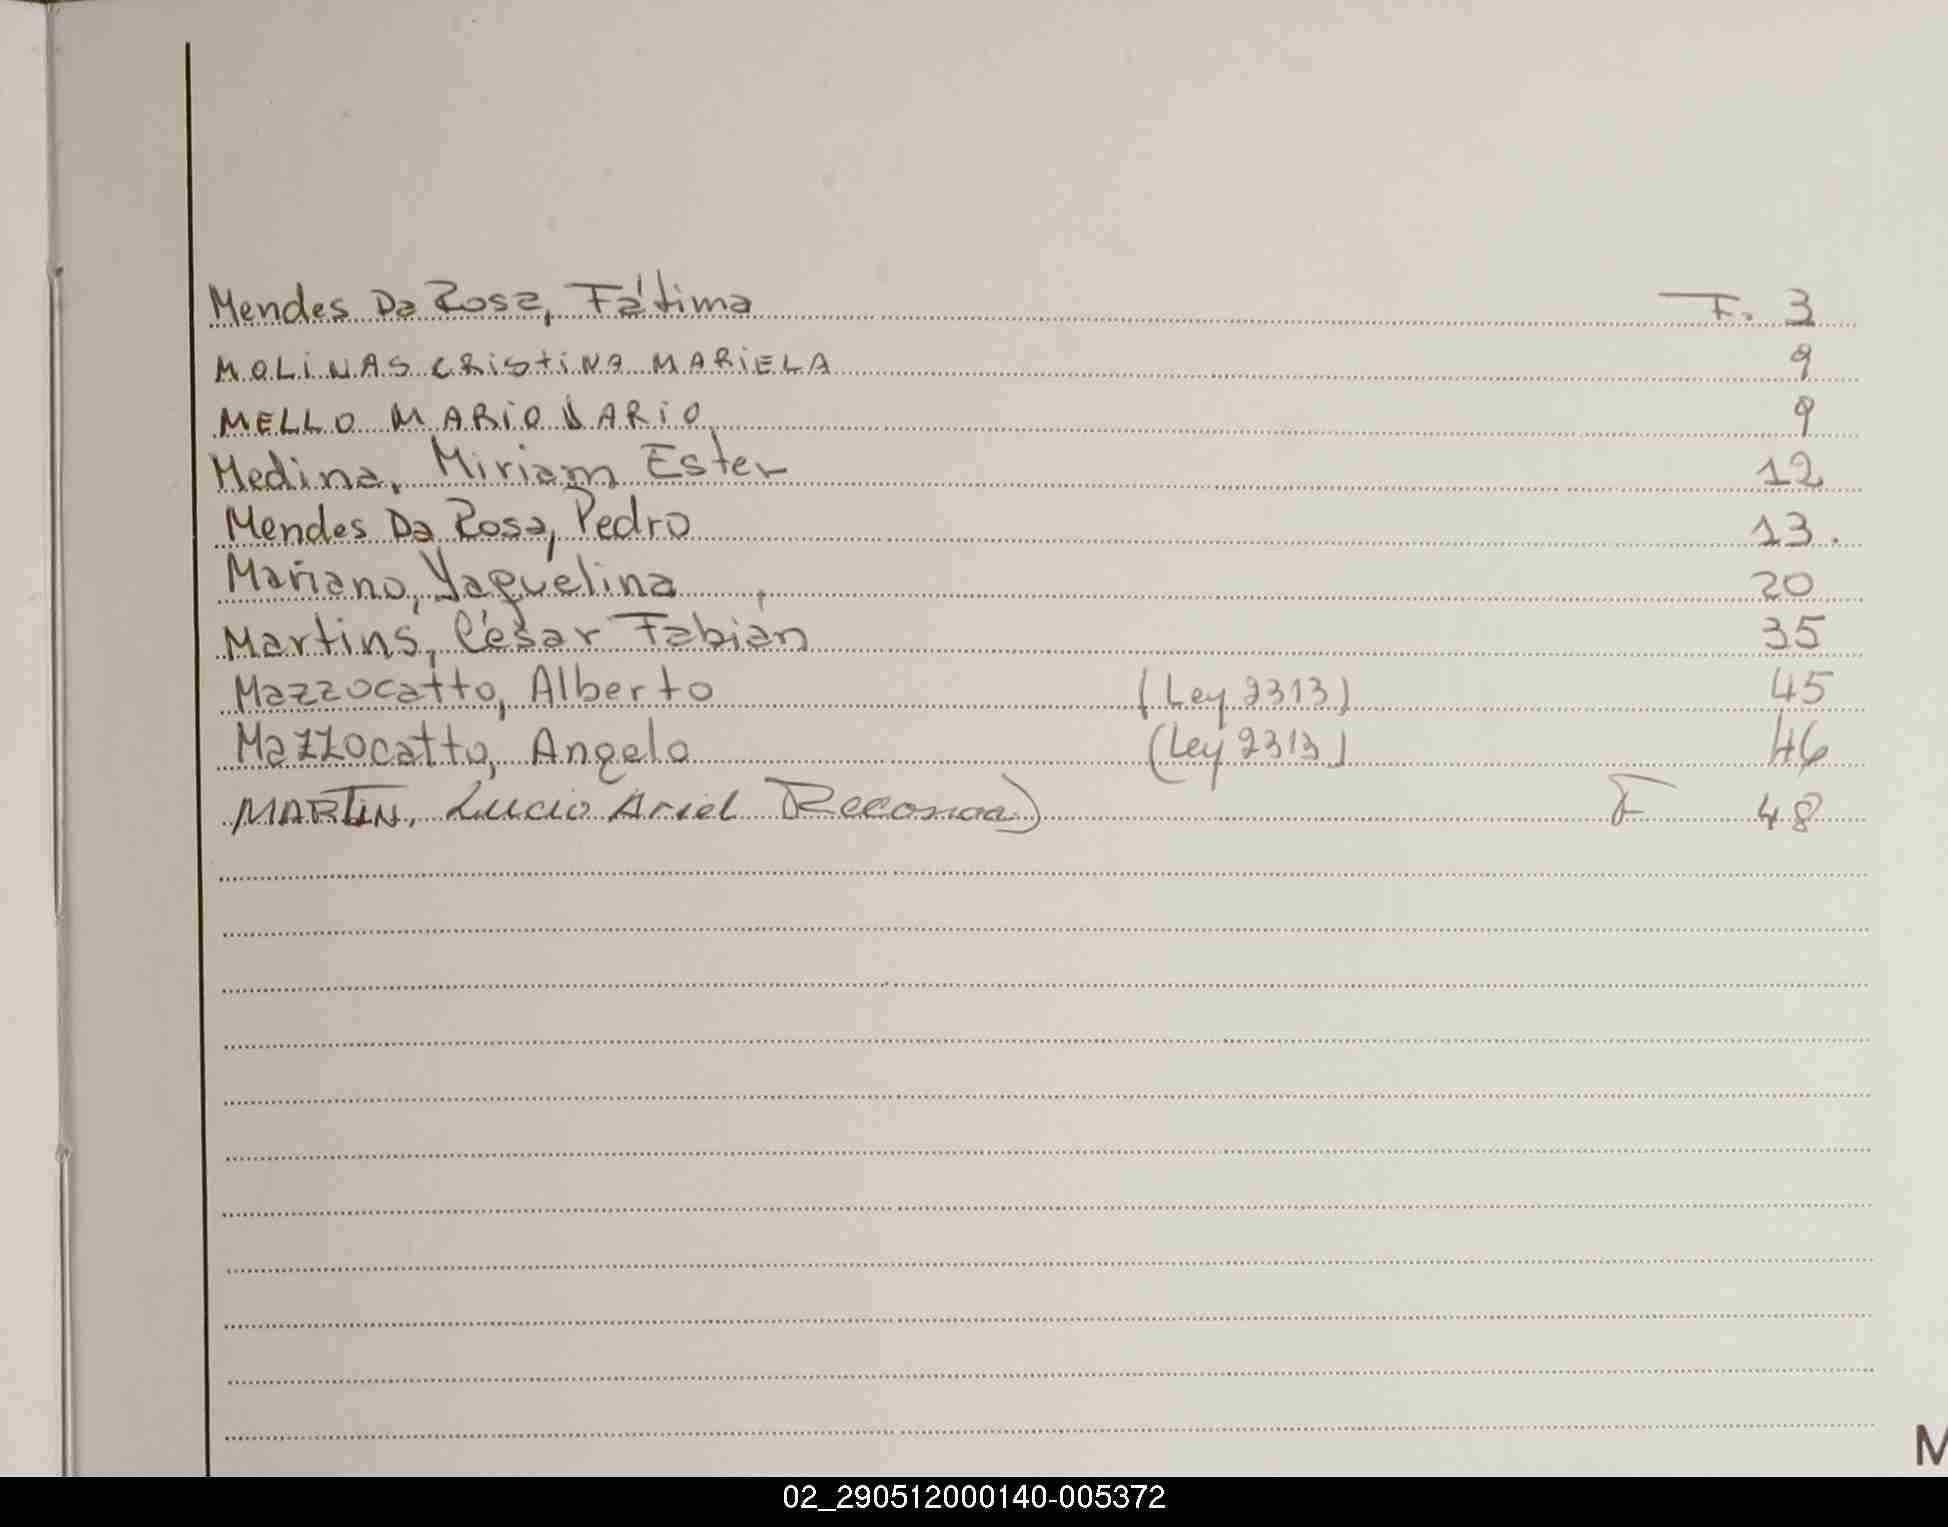 Mendes Da Rosa, Fátima F. 3
MOLINAS CRiStiNA MARiELA 9
MELLO MARiO DARiO 9
Medina, Miriam Ester 12
Mendes Da Rosa, Pedro 13.
Mariano, Yaquelina 20
Martins, César Fabián 35
Mazzocatto, Alberto (Ley 2313) 45
Mazzocatto, Angelo (Ley 2313) 46
MARTIN, Lucio Ariel F 48
M
02_290512000140-005372